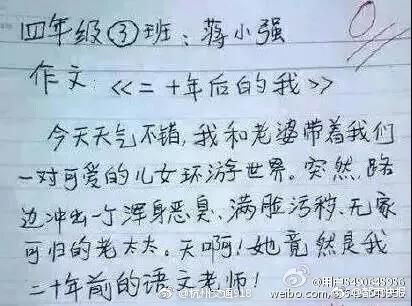 四年级③班：蒋小强
作文：《二十年后的我》
今天天气不错，我和老婆带着我们
一对可爱的儿女环游世界。突然，路
边冲出一个浑身恶臭、满脸污秽、无家
可归的老太太。天啊！她竟然是我
二十年前的语文老师！
@杭州交通918
weibo.com/